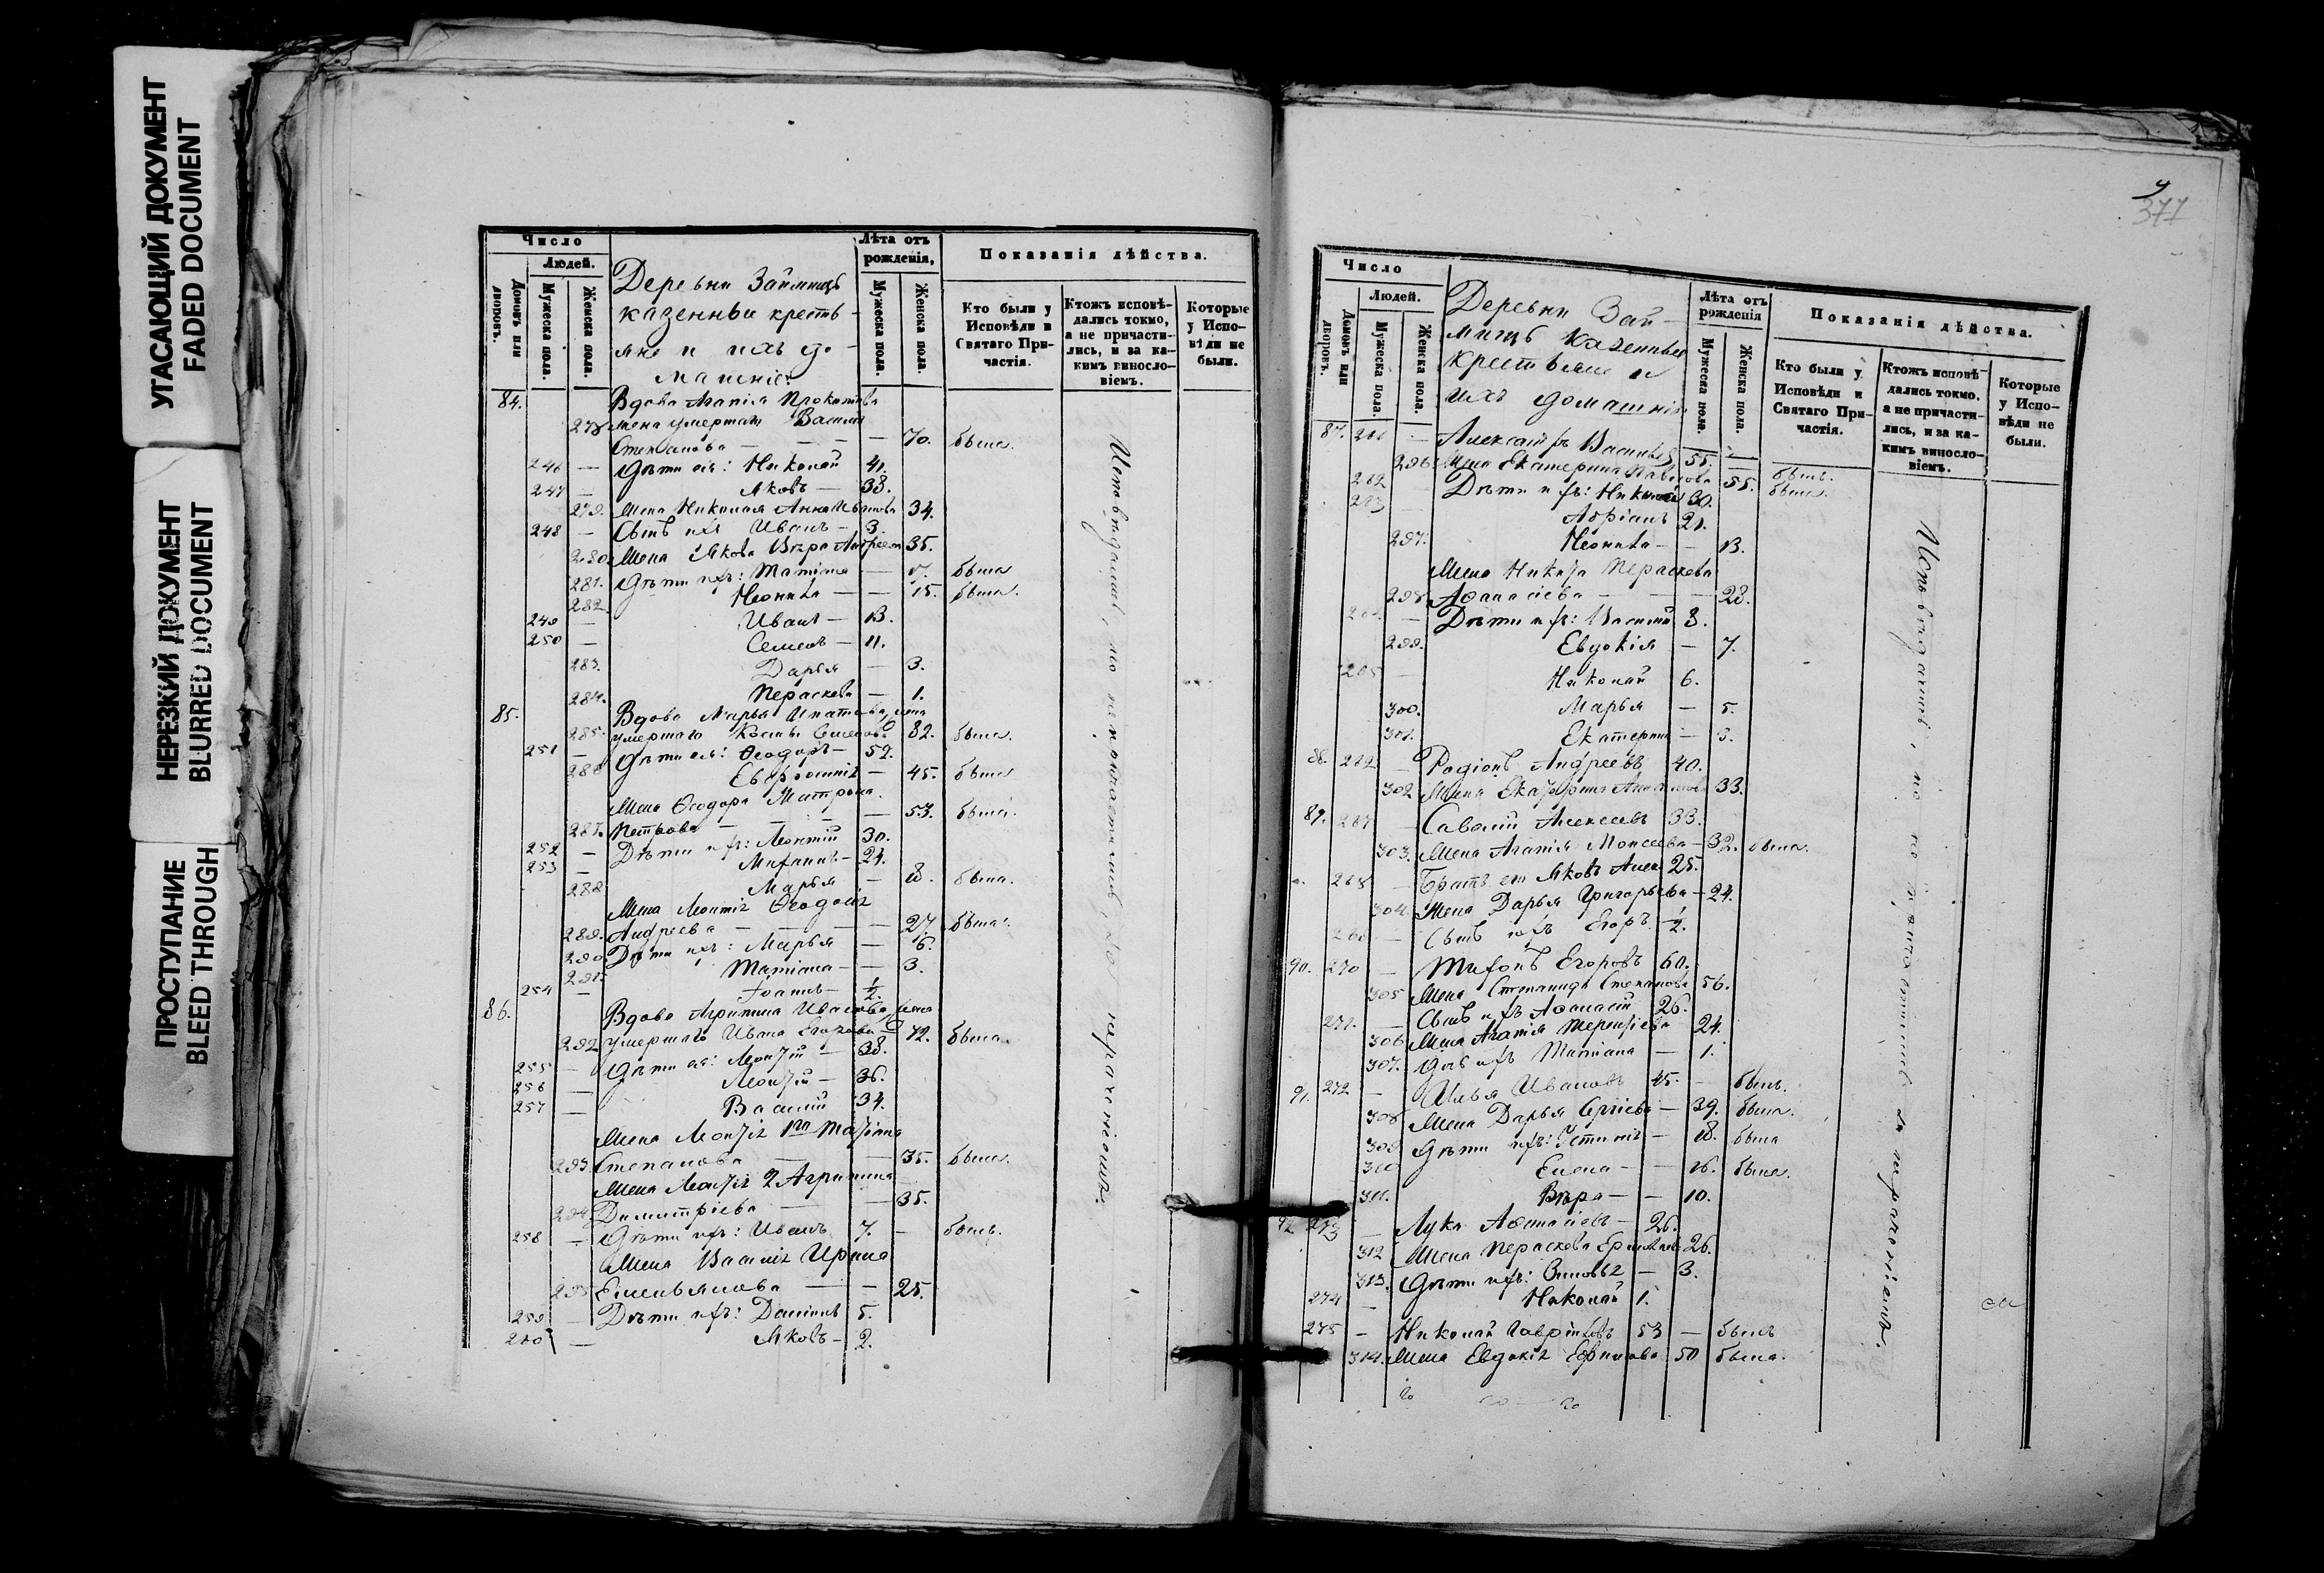 УГАСАЮЩИЙ ДОКУМЕНТ
FADED DOCUMENT
НЕРЕЗКИЙ ДОКУМЕНТ
BLURRED DOCUMENT
ПРОСТУПАНИЕ
BLEED THROUGH
Число
Людей.
Домовъ или дворовъ.
Мужеска пола.
Женска пола.
Деревни Займищъ
казенные кресть-
яне и ихъ до-
машніе:
Лѣта отъ рожденія,
Мужеска пола.
Женска пола.
Показанія дѣйства.
Кто были у Исповѣди и Святаго При-частія.
Ктожъ исповѣ-дались токмо, а не причасти-лись, и за ка-кимъ винносло-віемъ.
Которые у Испо-вѣди не были.
84. Вдова Агапія Прокопьева
278 жена умершаго Васили
Степанова — — — — 70. была.
246 — Дѣти ея: Николай 41.
247 — Яковъ — 38.
279. Жена Николая Анна Иванова 34.
248 — Сынъ ихъ Иванъ — 3.
280 Жена Якова Вѣра Андреева 35.
281. Дѣти ихъ: Татiана — 17. была
282. Неонила — — 15. была.
249 — Иванъ — 13.
250 — Семенъ — 11.
283. Дарья — 3.
284. Пераскева — 1.
85. Вдова Марья Игнатьева, жена
285. умершаго 82. была.
251 — Дѣти ея: Ѳеодоръ — 52.
286 Евфросинія — 45. была
Жена Ѳеодора Матрона
287. Петрова — — — 53. была.
252 — Дѣти ихъ: Леонтій 30.
253 — 24.
288 Марья — 18. была.
Жена Леонтія Ѳеодосія
289. Андреева — — — 27. была.
290 Дѣти ихъ: Марья — 6.
291. Татiана — — 3.
254 — Іоаннъ — ½.
86. Вдова Агрипина Иванова, жена
292 умершаго Ивана Егорова — 72. была.
255 — Дѣти ея: 38.
256 — 36.
257 — Василій 34.
293. Степанова — — 35. была.
294. Димитріева — — 35.
258 — Дѣти ихъ: Иванъ 7. — былъ.
Жена Василія Ирина
295 Емельянова — — 25.
259 — Дѣти ихъ: Даніилъ 5.
260 — Яковъ — 2.
Исповѣдались, но не причастились, за нераченіемъ.
377
Число
Людей.
Домовъ или дворовъ.
Мужеска пола.
Женска пола.
Деревни Зай-
мищъ казенные
крестьяне и
ихъ домашніе
Лѣта отъ рожденія
Мужеска пола.
Женска пола.
Показанія дѣйства.
Кто были у Исповѣди и Святаго При-частія.
Ктожъ исповѣ-дались токмо, а не причасти-лись, и за ка-кимъ винносло-віемъ.
Которые у Испо-вѣди не были.
87. 261 — Александръ Васильевъ 55. — былъ.
296 Жена Екатерина Павлова 55. была.
262 Дѣти ихъ: Никита 30.
263 — Адріанъ 21.
297. Неонила — — 13.
Жена Никиты Пераскева
298. Аѳанасіева — — — 28.
264 — Дѣти ихъ: Василій 8.
299. Евдокія — 7.
265 — Николай 6.
300. Марья — 5.
301. Екатерина — 3.
88. Родіонъ Андреевъ 40.
302 Жена Екатерина 33.
89. 267 — Саватій Алексеевъ 33.
303. Жена Агапія Моисеева — 32. была.
268 — Братъ его Яковъ Алек 25.
304. Жена Дарья Григорьева — 24.
269 — Сынъ ихъ Егоръ ½.
90. 270 — Тифонъ Егоровъ 60.
305 Жена Степанида Степанова 56.
271. — Сынъ ихъ Аѳанасій 26.
306 Жена Агапія Терентіева 24.
307. Дочь ихъ Татiана — 1.
91. 272 — Илья Ивановъ 45. — былъ.
308 Жена Дарья Сергіева — 39. была.
309 Дѣти ихъ: Устинія — 18. была
310 Елена — — 16. была.
311. Вѣра — — 10.
92 273 — Лука Аѳанасіевъ — 26.
312 Жена Пераскева 26.
313. Дѣти ихъ: Зиновія — 3.
274 — Николай 1.
275 — Николай Гавриловъ 53 — былъ
314. Жена Евдокія Ефимова 50 была.
Исповѣдались, но не причастились за нераченіемъ.